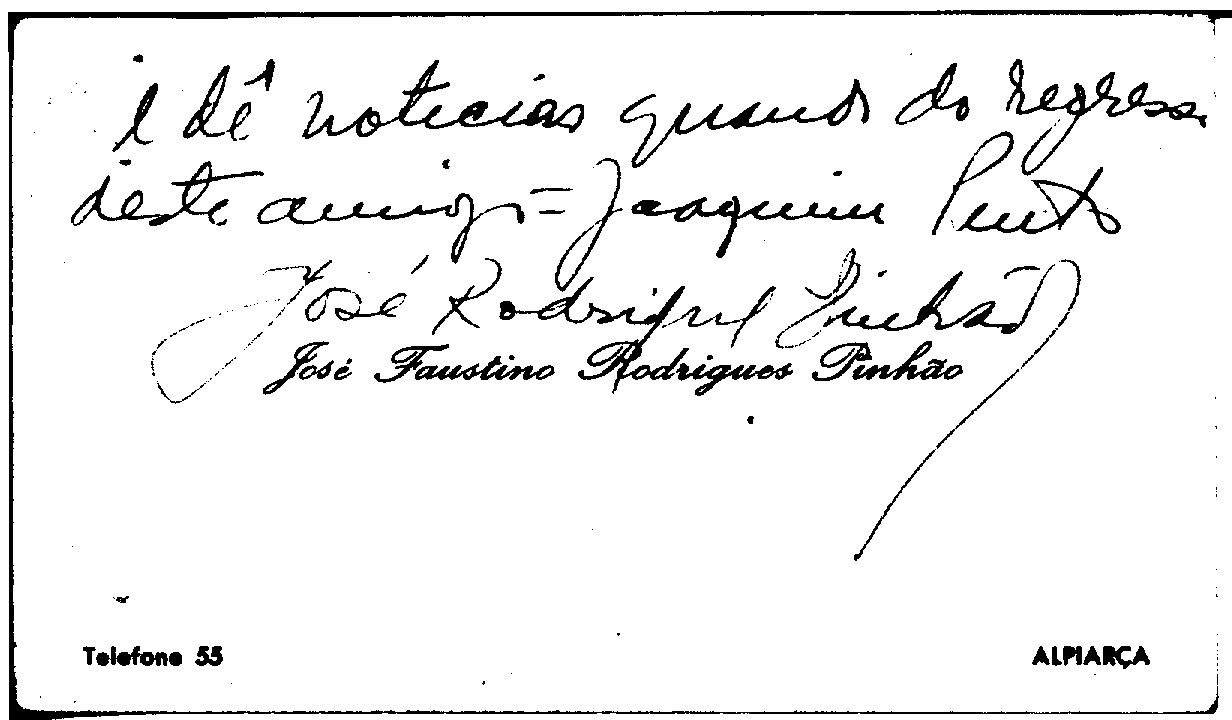 e dê noticias quando do regresso
deste amigo = Joaquim Pinto
José Rodrigues Pinhão
José Faustino Rodrigues Pinhão
Telefone 55
ALPIARÇA